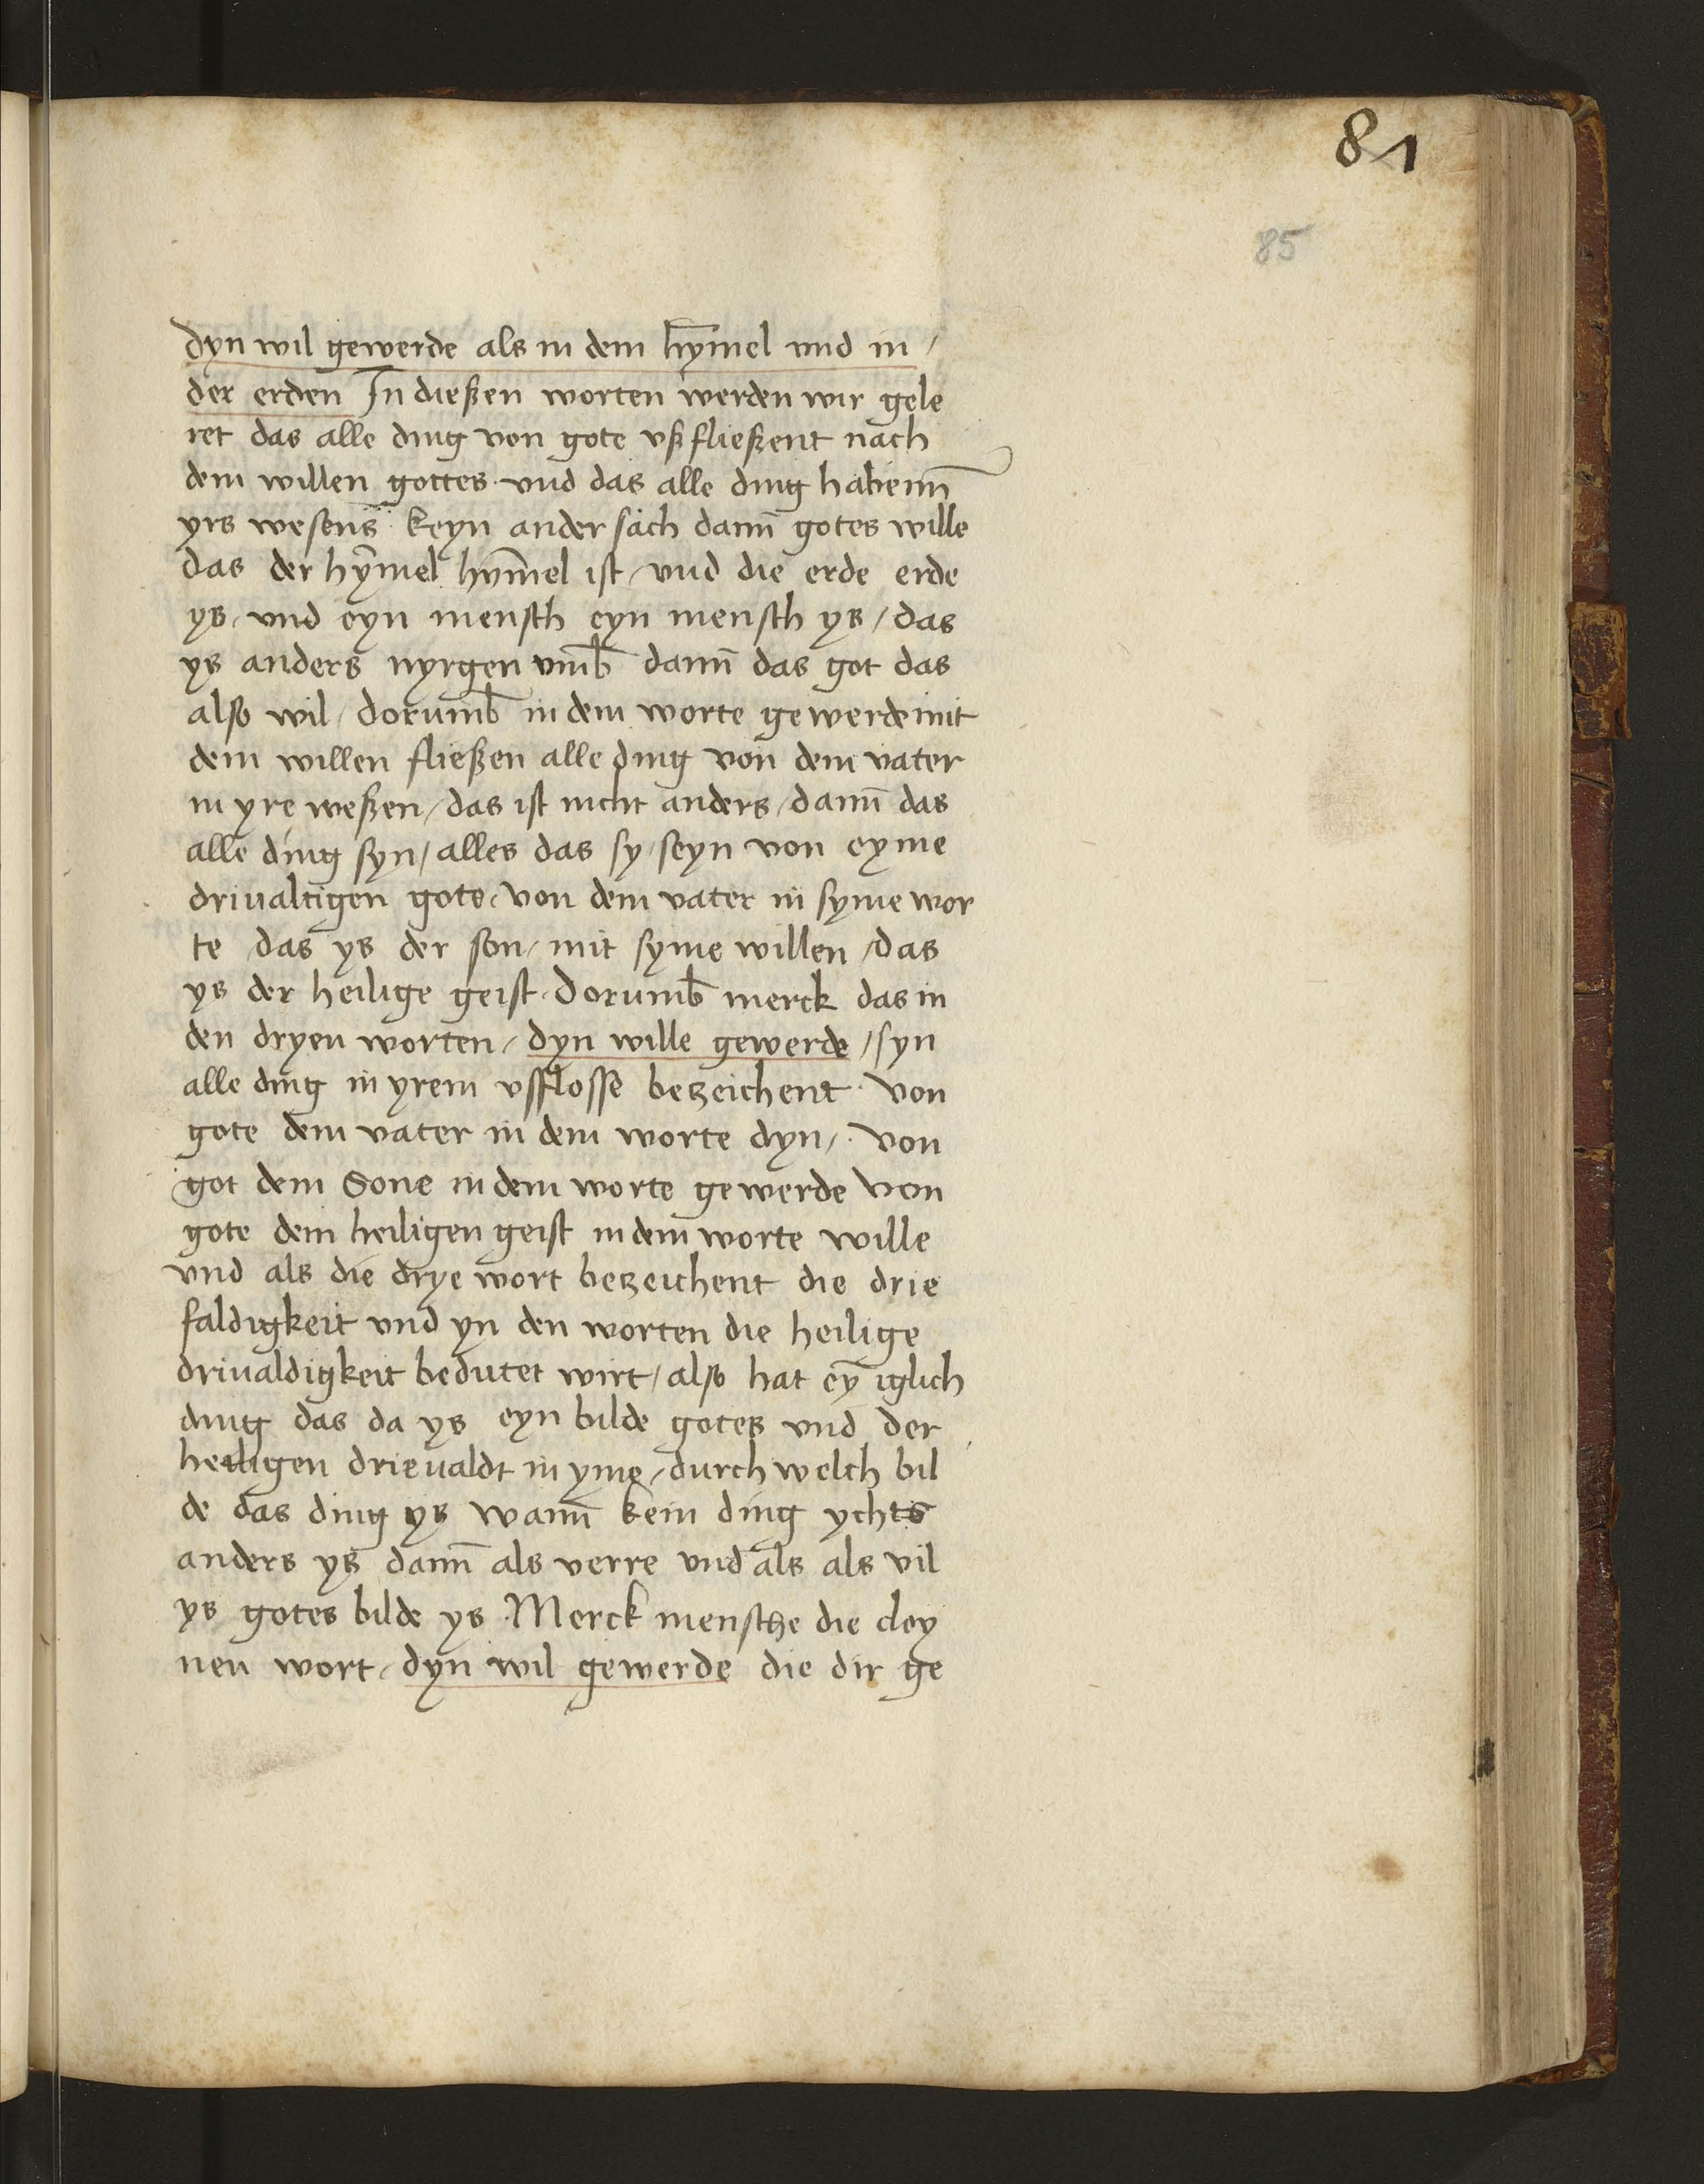 81
85
dyn wil gewerde als in dem hym̄el vnd in /
der erden In dießen worten werden wir gele
ret das alle ding von gote vßfließent nach
dem willen gottes · vnd das alle ding habenn̄
yrs wesens keyn ander sach dann̄ gotes wille
das der hym̄el hym̄el ist / vnd die erde erde
ys / vnd eyn mensch eyn mensch ys / das
ys anders nyrgen vmb̄ dann̄ das got das
also wil / dorumb̄ in dem worte gewerde mit
dem willen fließen alle ding von dem vater
in yre weßen / das ist nicht anders / dann̄ das
alle ding syn / alles das sy seyn von eyme
driualtigen gote / von dem vater in syme wor
te das ys der son / mit syme willen / das
ys der heilige geist / dorumb̄ merck das in
den dryen worten / dyn wille gewerde / syn
alle ding in yrem vsflosse bezeichent · von
gote dem vater in dem worte dyn / · von
got dem Sone in dem worte gewerde von
gote dem heiligen geist in dem worte wille
vnd als die drye wort bezeichent die drie
faldigkeit vnd yn den worten die heilige
driualdigkeit bedutet wirt / also hat eȳ iglich
ding das da ys eyn bilde gotes vnd der
heiligen drieualdt in yme / durch welch bil
de das ding ys wann̄ kein ding ychts
anders ys dann̄ als verre vnd als als vil
ys gotes bilde ys · Merck mensche die cley
nen wort / dyn wil gewerde die dir ge